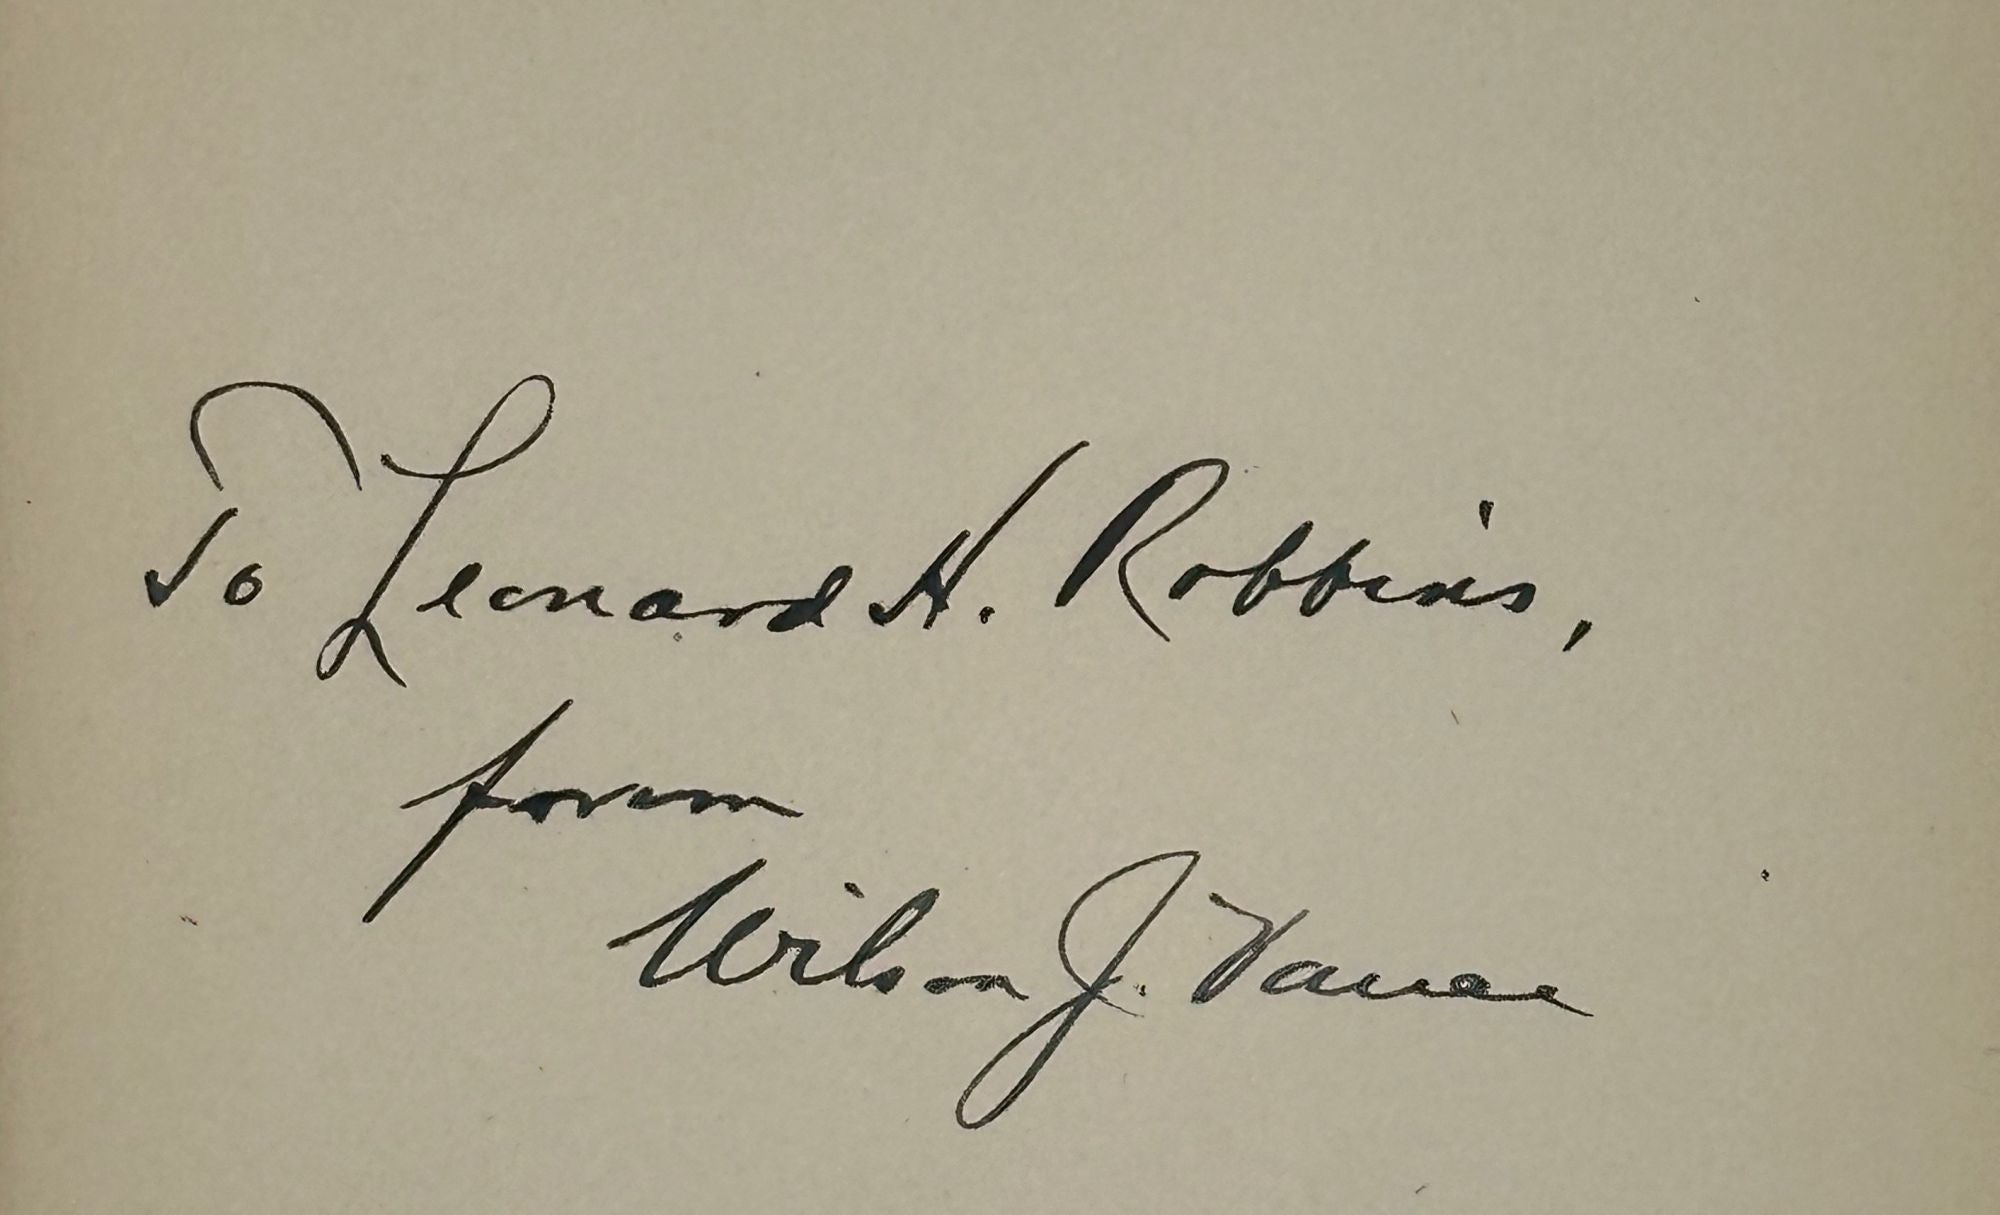 To Leonard H. Robbins,
from
Wilson J. Vance